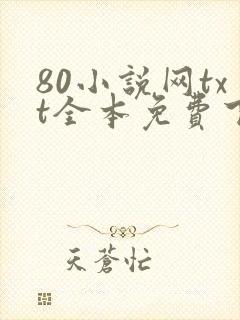 80小説网tx
t全本免費
天蒼忙